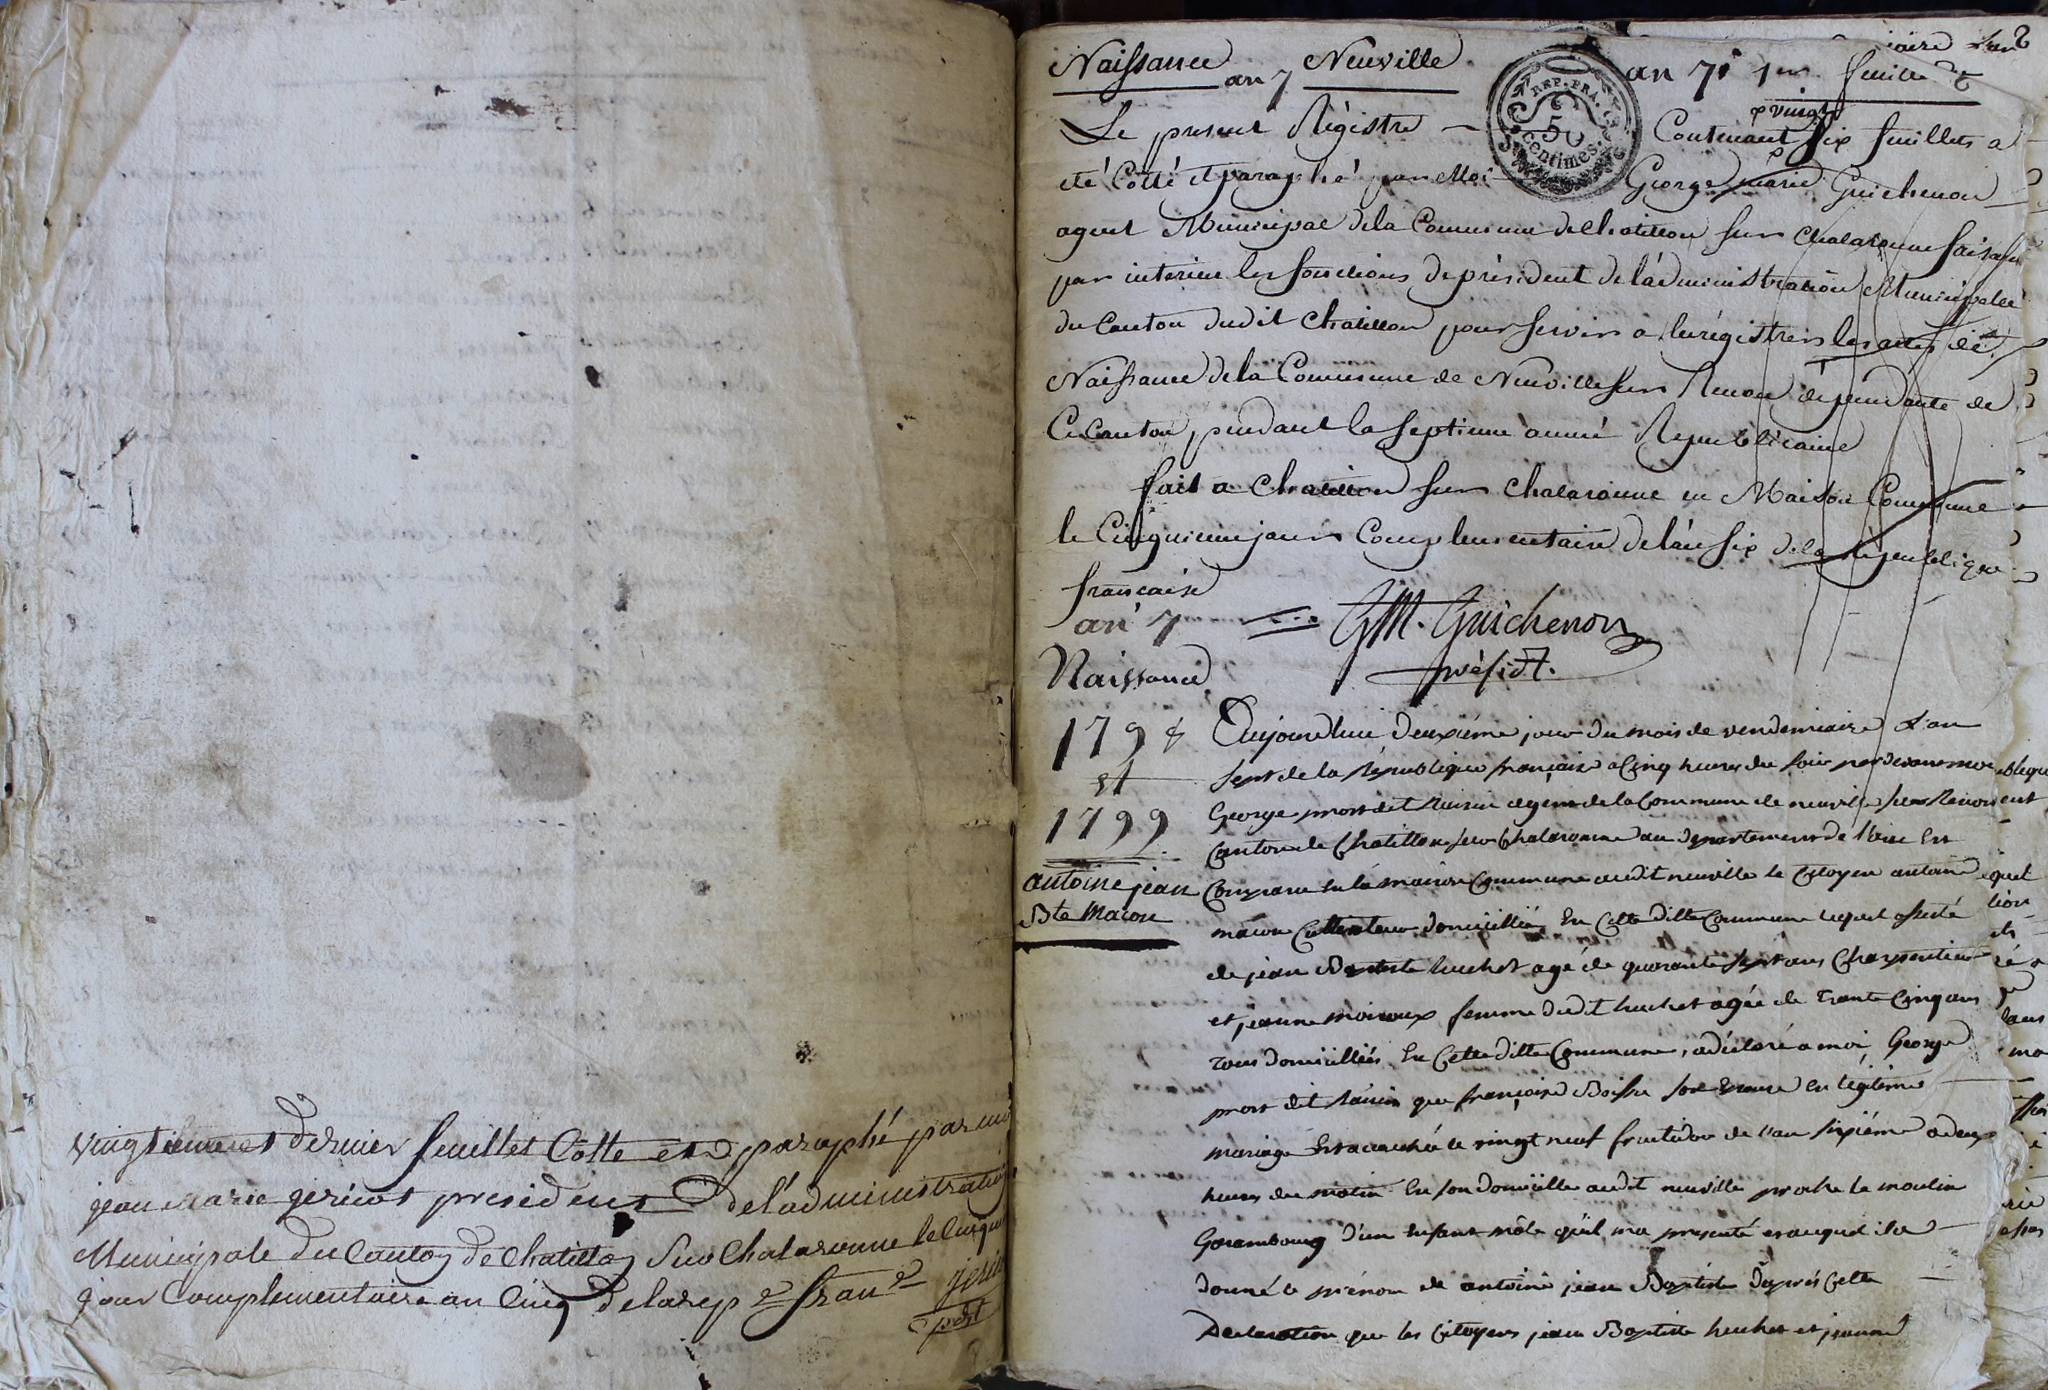 vingtieme et dernier feuillet Cotte et paraphé par moi
jean marie gericot president de l'administration
Municipale du Canton de Chatillon sur Chalaronne le Cinqu
jour Complementaire an Cinq de la rep e fran e
pdt
Naissance an 7 Neuville an 7e 1er feuillet
REP. FRA.
5
Centimes.
vingt
Le present Régistre Contenant six feuillets a
été Cotté et paraphé par Moi George marie Guichenon
agent Municipal de la Commune de Chatillon sur Chalaronne faisant
par interim les fonctions de président de l'administration Municipale
du Canton dudit Chatillon pour servir a Enrégistrer les actes de
Naissance de la Commune de Neuville sur Renon dependante de
Ce Canton, pendant la septieme année Republicaine
fait a Chatillon sur Chalaronne en Maison Commune
le Cinquieme jour Complementaire de l'an six de la Republique
francaise
an 7 GM. Guichenon
présidt.
Naissance
1798
et
1799
antoine jean
Bte Macon
Aujourd'hui deuxième jour du mois de vendemiaire L'an
sept de la République française a Cinq heures du soir par devant moi
George mort dit agent de la Commune de neuville sur Renon
Canton de Chatillon sur Chalaronne au département de l'ain Est
Comparu En la maison Commune audit neuville le Citoyen antoine
macon Cultivateur domicillié En Cette ditte Commune lequel assisté
de jean Baptiste huchet agé de quarante sept ans Charpentier
et jeanne moiroux femme dudit huchet agée de trante Cinq ans
tous domicilliés En Cette ditte Commune, a déclaré a moi George
mort dit que françoise son Epouse en légitime
mariage Est accouchée le vingt neuf fructidor de l'an sixième a deux
heures du matin En son domicille audit neuville proche le moulin
Garambourg d'un Enfant mâle qu'il ma presenté et auquel il a
donné le prénom de antoine jean Baptiste D'après Cette
Declaration que les Citoyens jean Baptiste huchet et jeanne